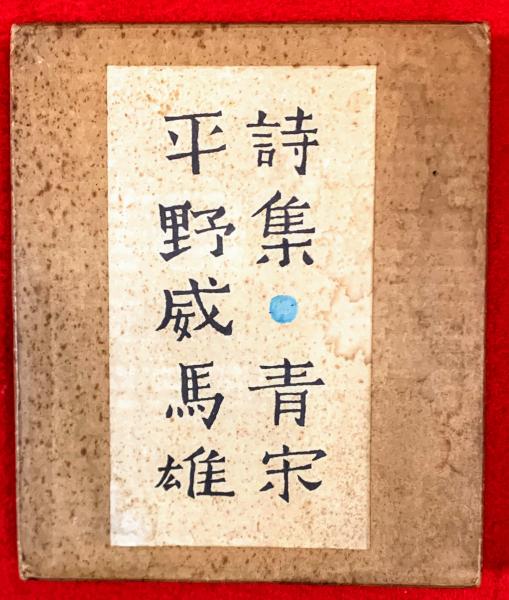 詩集・青宋
平野威馬雄